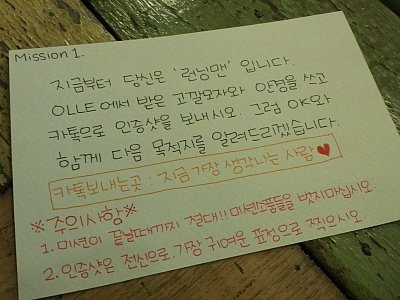 Mission 1.
지금부터 당신은 '런닝맨' 입니다.
OLLE 에서 받은 고깔모자와 안경을 쓰고
카톡으로 인증샷을 보내시오. 그럼 OK와
함께 다음 목적지를 알려드리겠습니다.
카톡보내는곳 : 지금 가장 생각나는 사람♥
※주의사항※
1. 미션이 끝날때까지 절대!! 미션소품들을 벗지마십시오.
2. 인증샷은 전신으로. 가장 귀여운 표정으로 찍으시오.